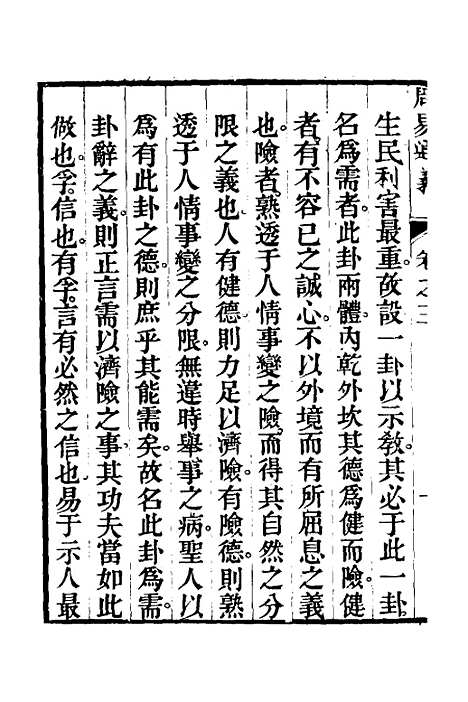 周易通義
卷之三
一
生民利害最重。故設一卦以示敎。其必于此一卦。
名爲需者。此卦兩體。內乾外坎。其德爲健而險。健
者。有不容已之誠心。不以外境而有所屈息之義
也。險者。熟透于人情事變之險。而得其自然之分
限之義也。人有健德。則力足以濟險。有險德。則熟
透于人情事變之分限。無違時舉事之病。聖人以
爲有此卦之德。則庶乎其能需矣。故名此卦爲需。
卦辭之義。則正言需以濟險之事。其功夫當如此
做也。孚。信也。有孚。言有必然之信也。易于示人最